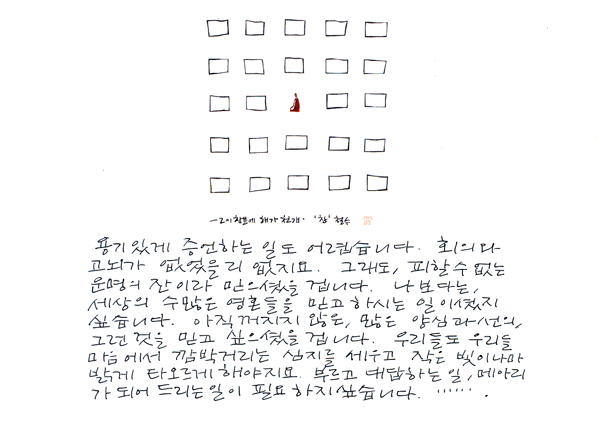 '참' 철수
용기있게 증언하는 일도 어렵습니다. 회의와
고뇌가 없었을리 없지요. 그래도, 피할 수 없는
운명의 잔이라 믿으셨을 겝니다. 나보다는,
세상의 수많은 영혼들을 믿고 하시는 일이셨지
싶습니다. 아직 꺼지지 않은, 많은 양심과 선의,
그런 것을 믿고 싶으셨을 겝니다. 우리들도 우리들
마음에서 깜박거리는 심지를 세우고 작은 빛이나마
밝게 타오르게 해야지요. 부르고 대답하는 일, 메아리
가 되어 드리는 일이 필요하지 싶습니다. …….